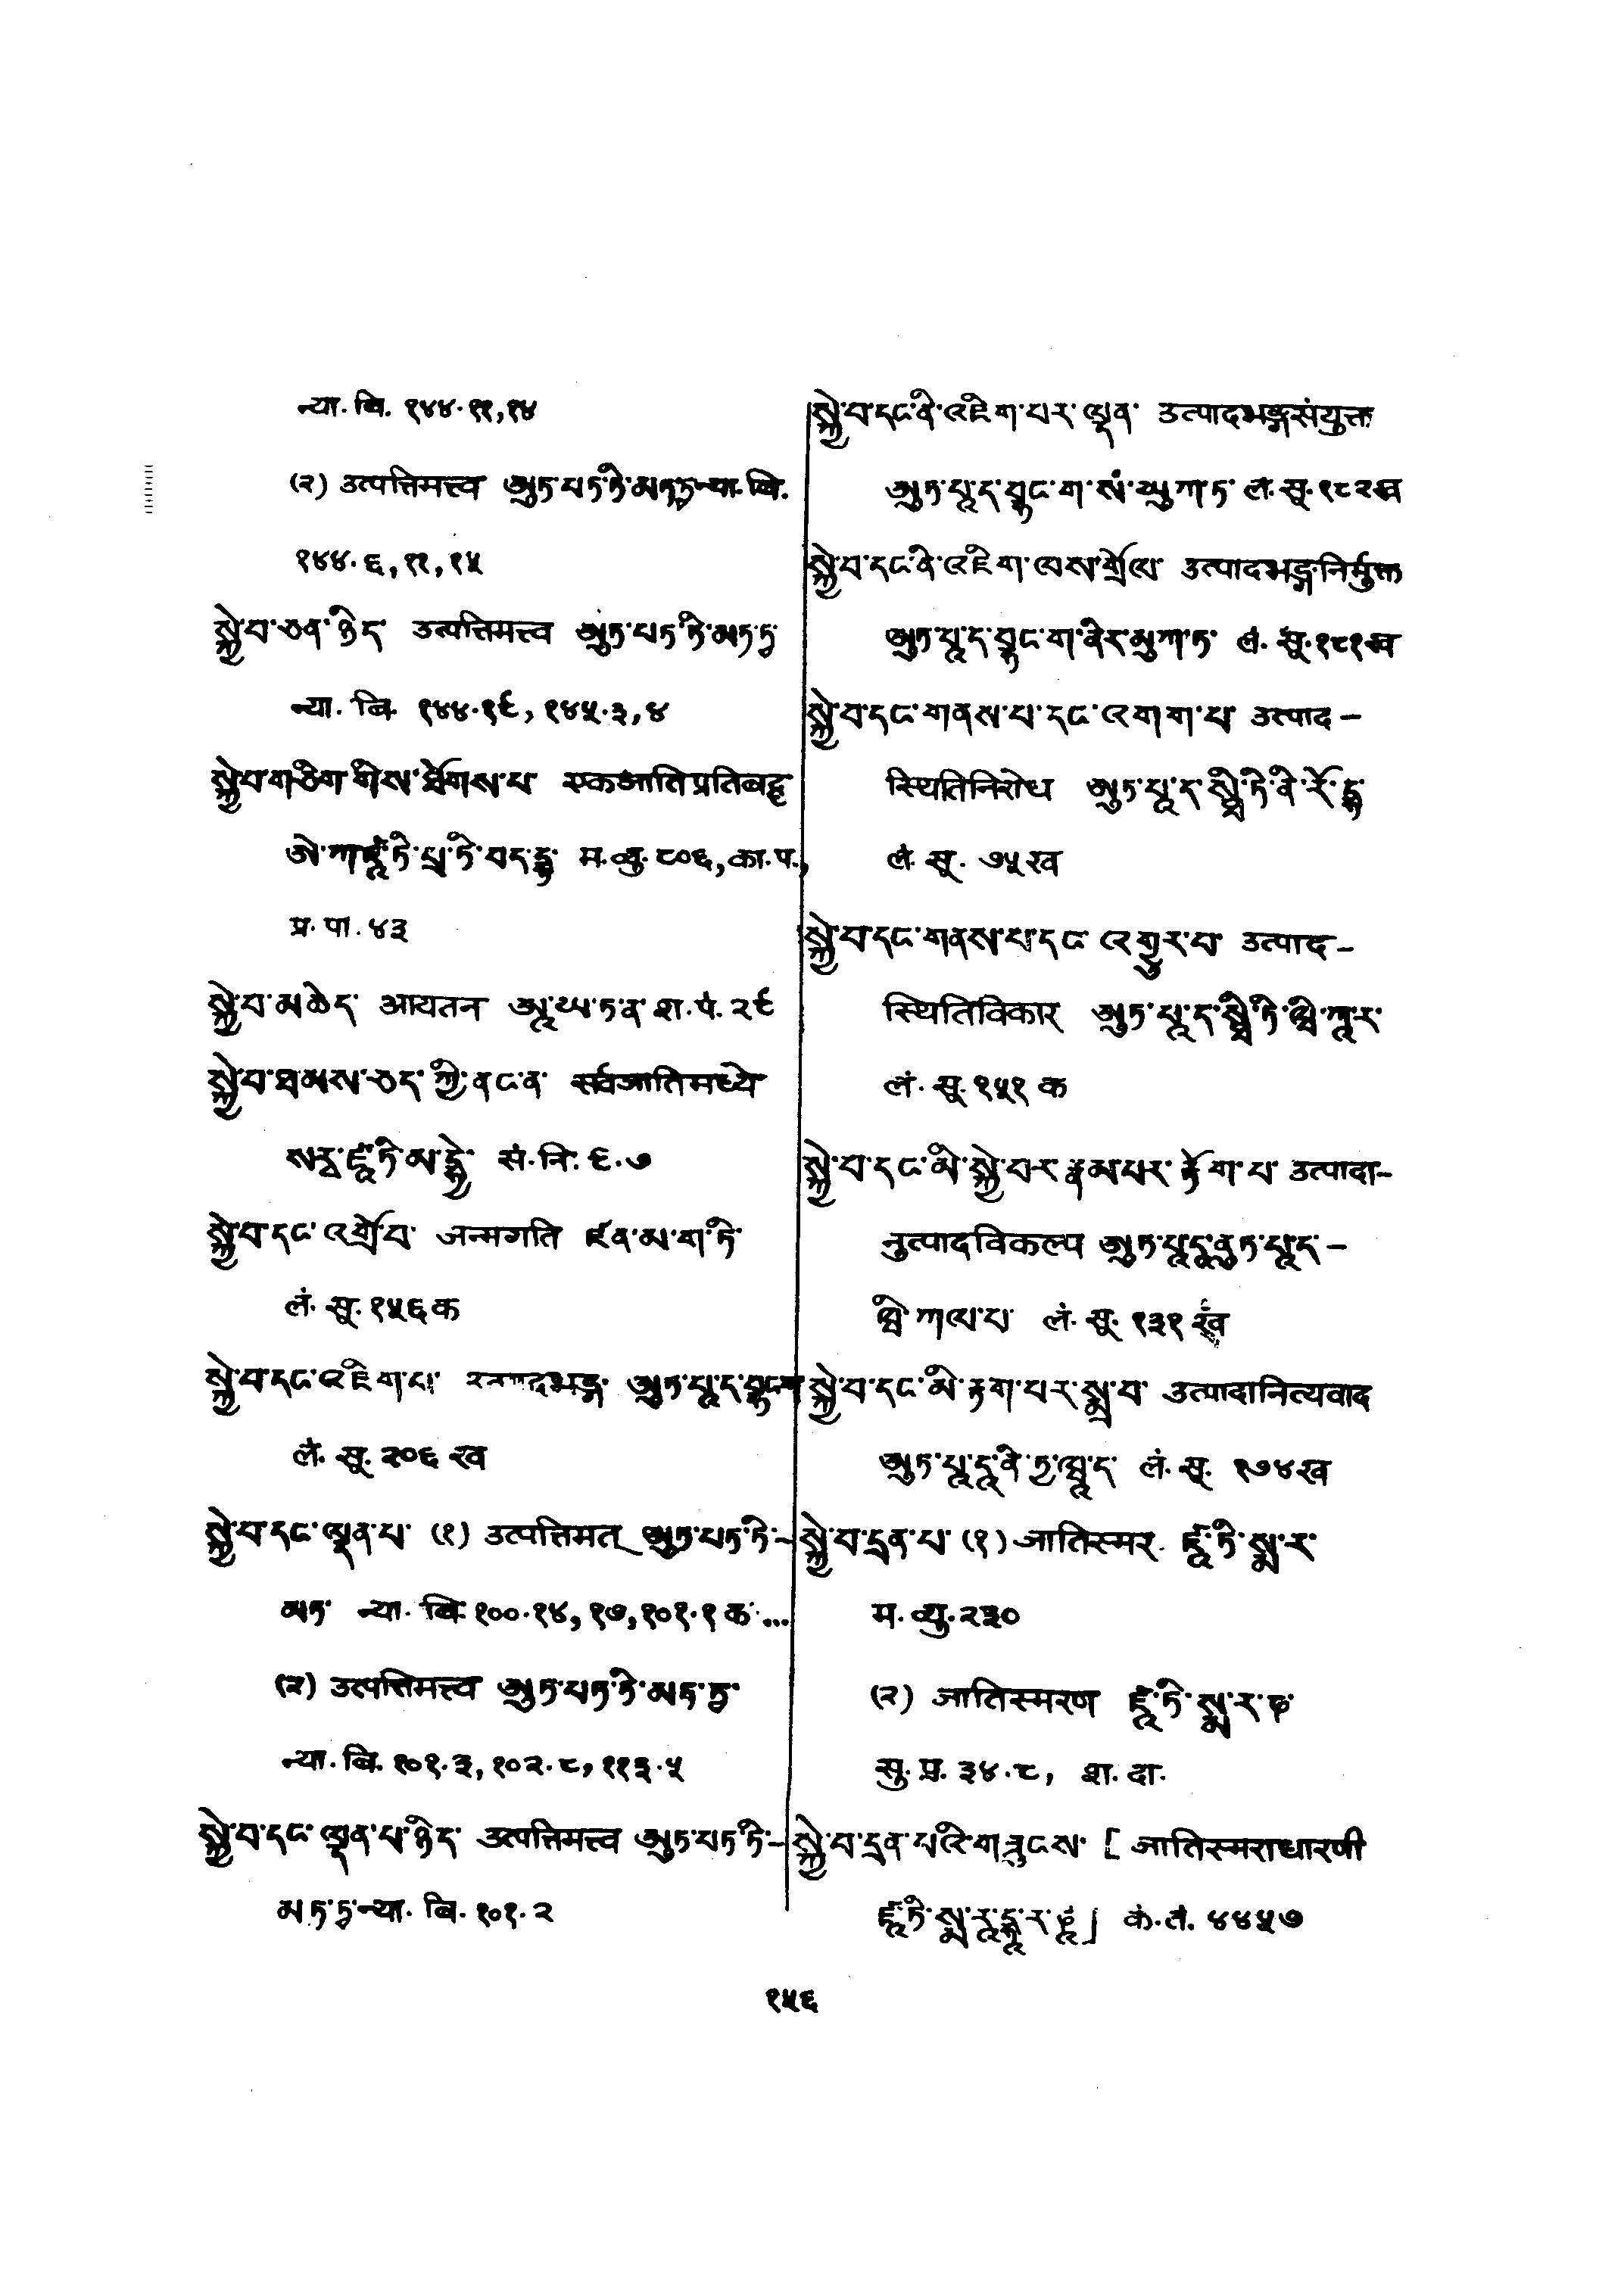 न्या. बि. १४४.११,१४
(२) उत्पत्तिमत्त्व ཨུཏ་པཏ་ཏི་མཏ་ཏྭ་ न्या. बि.
१४४.६,११,१५
སྐྱེ་བ་ཅན་ཉིད་ उत्पत्तिमत्त्व ཨུཏ་པཏ་ཏི་མཏ་ཏྭ་
न्या. बि. १४४.१९, १४५.३,४
སྐྱེ་བ་གཅིག་གིས་ཐོགས་པ་ एकजातिप्रतिबद्ध
ཨེ་ཀ་ཛཱ་ཏི་པྲ་ཏི་བད་དྷ་ म.व्यु. ८०६, का.प.,
प्र. पा. ४३
སྐྱེ་བ་མཆེད་ आयतन ཨཱ་ཡ་ཏ་ན་ श.पं. २९
སྐྱེ་བ་ཐམས་ཅད་ཀྱི་ནང་ན་ सर्वजातिमध्ये
སརྦ་ཛཱ་ཏི་མ་དྷྱེ་ सं.नि. ९.७
སྐྱེ་བ་དང་འགྲོ་བ་ जन्मगति ཛན་མ་ག་ཏི་
लं. सू. १५६ क
སྐྱེ་བ་དང་འཇིག་པ་ उत्पादभङ्ग ཨུཏ་པཱ་ད་བྷང་ག་
लं. सू. २०६ ख
སྐྱེ་བ་དང་ལྡན་པ་ (१) उत्पत्तिमत् ཨུཏ་པཏ་ཏི་–
མཏ་ न्या. बि. १००.१४, १७, १०१.१ क ...
(२) उत्पत्तिमत्त्व ཨུཏ་པཏ་ཏི་མཏ་ཏྭ་
न्या. बि. १०१.३, १०२.८, ११३.५
སྐྱེ་བ་དང་ལྡན་པ་ཉིད་ उत्पत्तिमत्त्व ཨུཏ་པཏ་ཏི་–
མཏ་ཏྭ་ न्या. बि. १०१.२
སྐྱེ་བ་དང་ནི་འཇིག་པར་ལྡན་ उत्पादभङ्गसंयुक्त
ཨུཏ་པཱ་ད་བྷང་ག་སཾ་ཡུཀ་ཏ་ लं. सू. १८२ ख
སྐྱེ་བ་དང་ནི་འཇིག་ལས་གྲོལ་ उत्पादभङ्गनिर्मुक्त
ཨུཏ་པཱ་ད་བྷང་ག་ནིར་མུཀ་ཏ་ लं. सू. १८१ ख
སྐྱེ་བ་དང་གནས་པ་དང་འགག་པ་ उत्पाद–
स्थितिनिरोध ཨུཏ་པཱ་ད་སྠི་ཏི་ནི་རོ་དྷ་
लं. सू. ७५ ख
སྐྱེ་བ་དང་གནས་པ་དང་འགྱུར་བ་ उत्पाद–
स्थितिविकार ཨུཏ་པཱ་ད་སྠི་ཏི་ཝི་ཀཱ་ར་
लं. सू. १५१ क
སྐྱེ་བ་དང་མི་སྐྱེ་བར་རྣམ་པར་རྟོག་པ་ उत्पादा–
नुत्पादविकल्प ཨུཏ་པཱ་དཱ་ནུཏ་པཱ་ད་–
ཝི་ཀལ་པ་ लं. सू. १३१ ख
སྐྱེ་བ་དང་མི་རྟག་པར་སྨྲ་བ་ उत्पादानित्यवाद
ཨུཏ་པཱ་དཱ་ནི་ཏྱ་ཝཱ་ད་ लं. सू. १७४ ख
སྐྱེ་བ་དྲན་པ་ (१) जातिस्मर ཛཱ་ཏི་སྨ་ར་
म. व्यु. २३०
(२) जातिस्मरण ཛཱ་ཏི་སྨ་ར་ཎ་
सु. प्र. ३४.८, श. दा.
སྐྱེ་བ་དྲན་པའི་གཟུངས་ [ जातिस्मराधारणी
ཛཱ་ཏི་སྨ་རཱ་དྷཱ་ར་ཎཱི] कं.तं. ४४५७
१५६